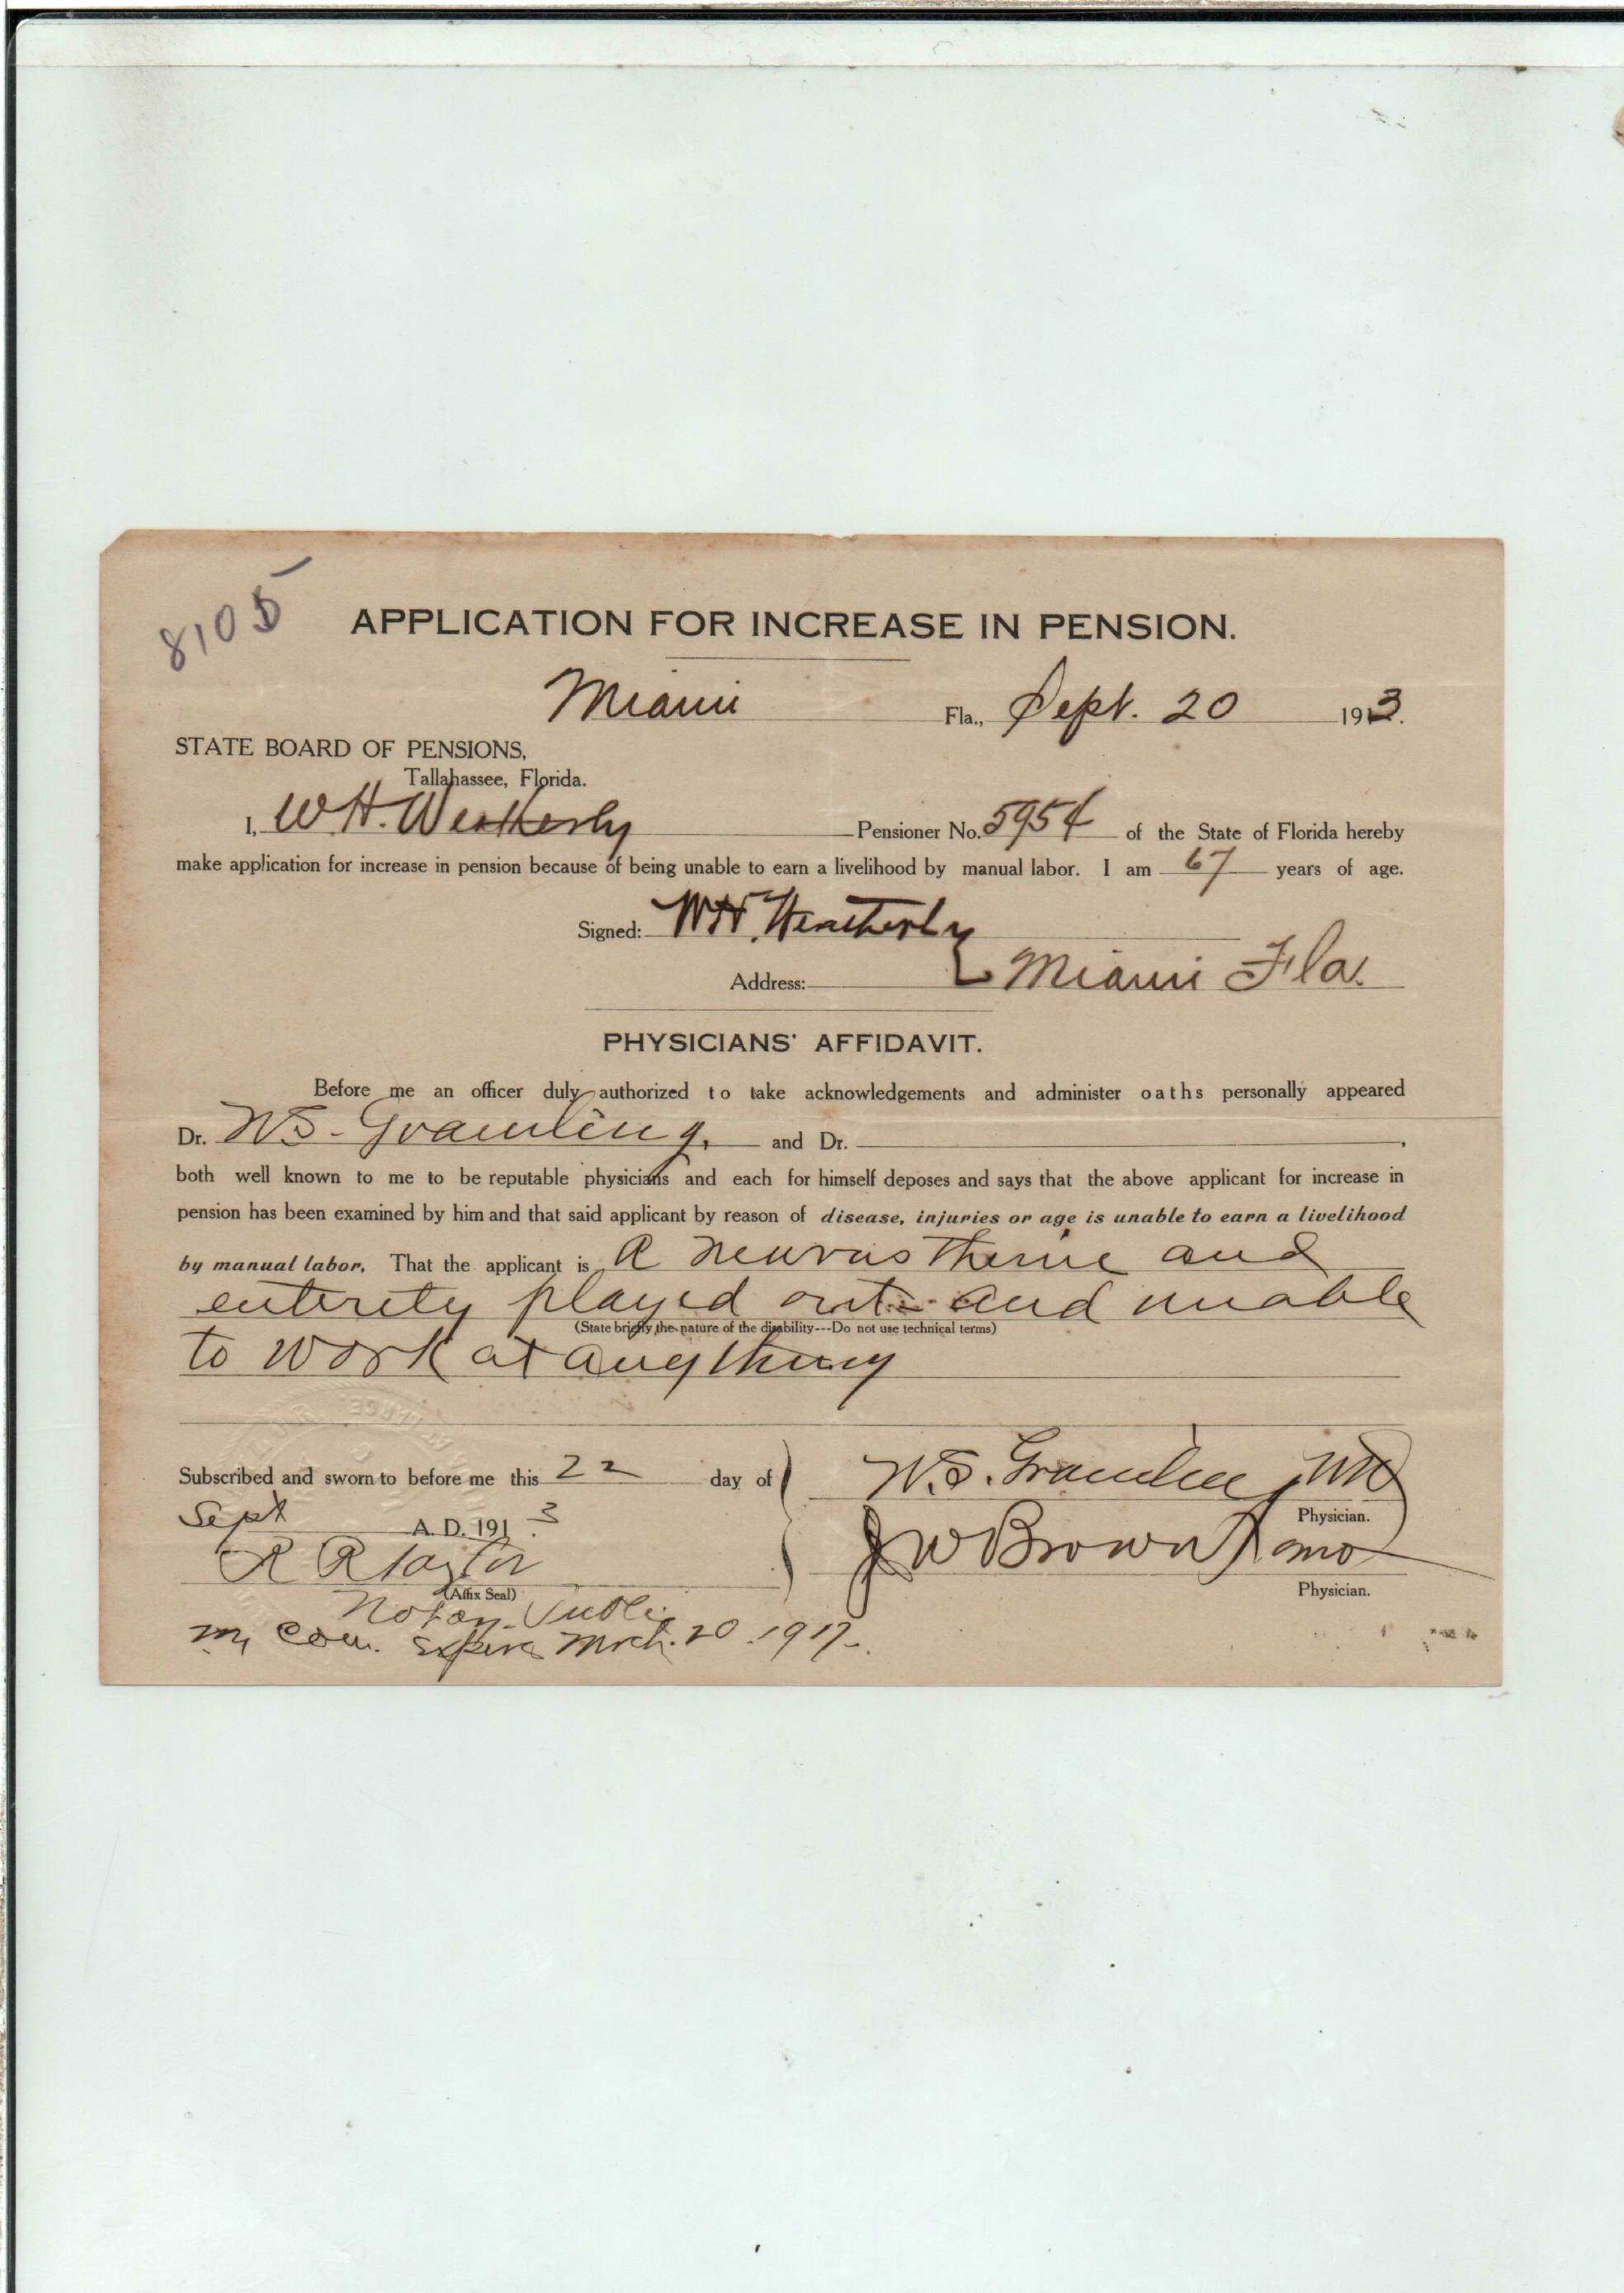 8105
APPLICATION FOR INCREASE IN PENSION.
Miami Fla., Sept. 20 1913.
STATE BOARD OF PENSIONS,
Tallahassee, Florida.
I, W H. Weatherly Pensioner No. 5954 of the State of Florida hereby
make application for increase in pension because of being unable to earn a livelihood by manual labor. I am 67 years of age.
Signed: W H. Weatherly
Address: Miami Fla.
PHYSICIANS' AFFIDAVIT.
Before me an officer duly authorized to take acknowledgements and administer oaths personally appeared
Dr. W S. Gramling, and Dr.
both well known to me to be reputable physicians and each for himself deposes and says that the above applicant for increase in
pension has been examined by him and that said applicant by reason of disease, injuries or age is unable to earn a livelihood
by manual labor. That the applicant is a and
entirely played out and unable
(State briefly the nature of the disability---Do not use technical terms)
to work at anything
Subscribed and sworn to before me this 22 day of W. S. Gramling MD
Physician.
Sept A. D. 1913
R R Taylor J W Brown
(Affix Seal) Physician.
Notary Public
My Com. Expires Mrch. 20 1917.